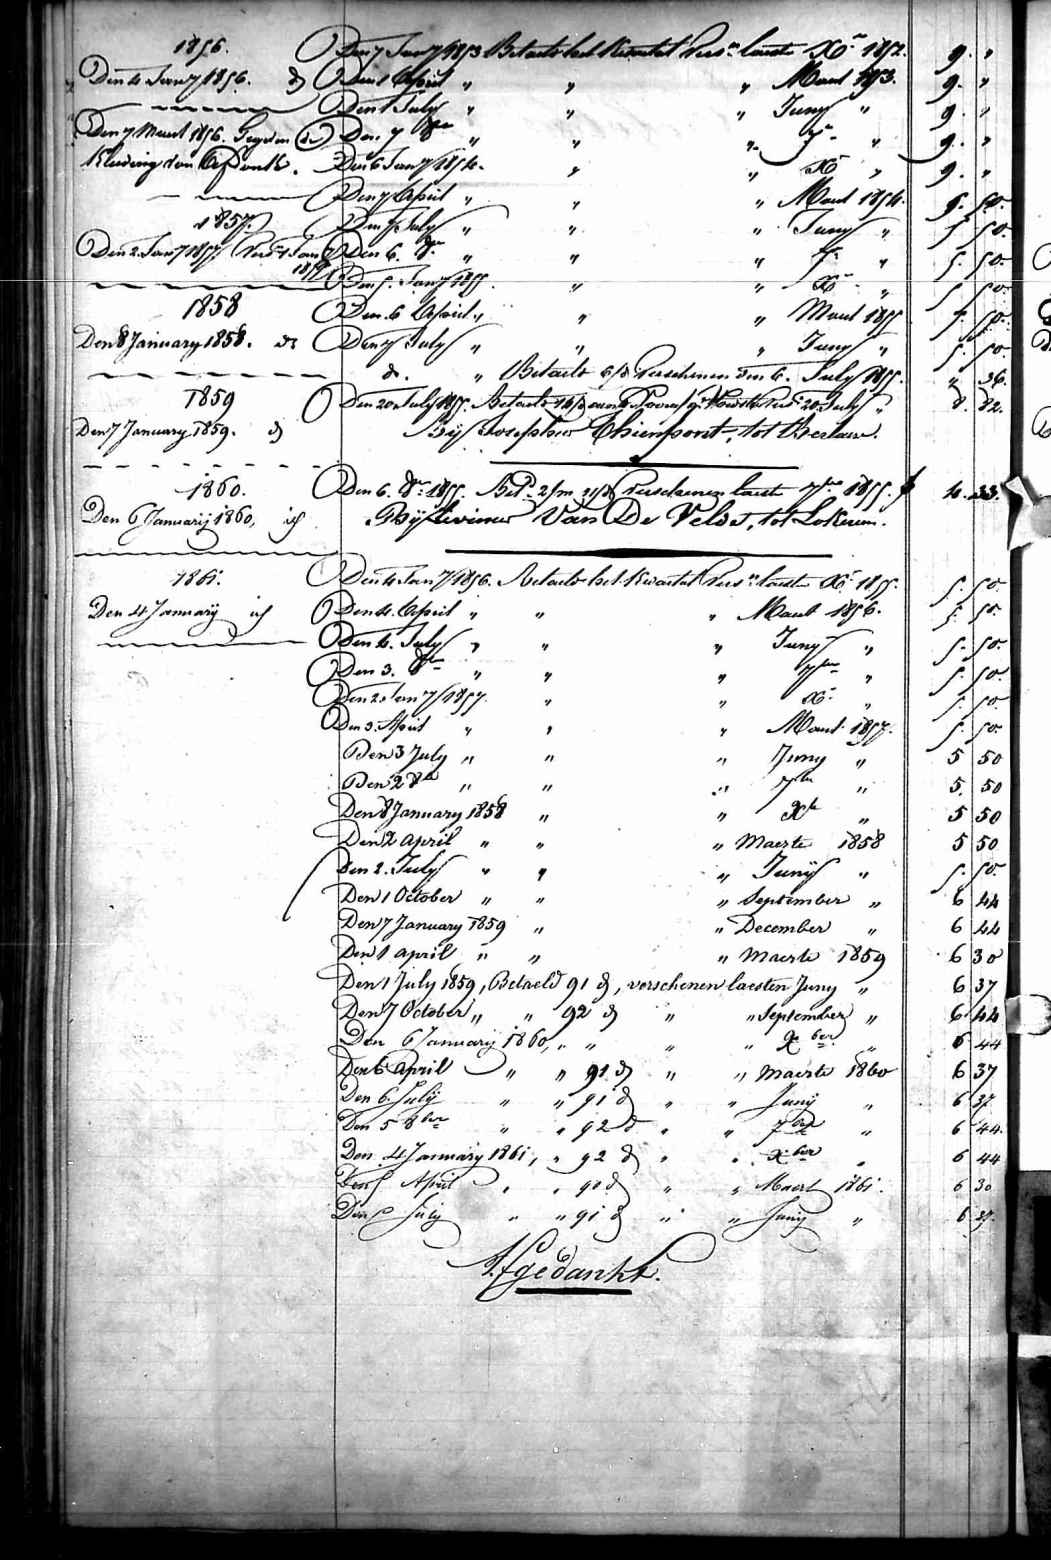 1856.
Den 4 Jany 1856. d
Den 7 Maart 1856. Gegeven
Kleeding van
1857.
Den 2. Jany 1857.
1858
Den 8 January 1858. d
1859
Den 7 January 1859. d
1860.
Den 6 Januarij 1860, id
1861.
Den 4 January id
Den 7 Jany 1853 Betaelt het Kwartal Versn. laest Xr 1852. 9. "
Den 1 April " " " Maert 1853. 9. "
Den 1 July " " " Juny " 9. "
Den 7 8er " " " 7r " 9. "
Den 6 Jany 1854. " " Xr " 9. "
Den 7 April " " " Maert 1854. 5. 50.
Den 7 July " " " Juny " 5 50.
Den 6. 8er " " " 7r " 5. 50.
Den 5. Jany 1855. " " Xr " 5 50
Den 6 April " " " Maert 1855 5. 50.
Den 7 July " " " Juny " 5. 50.
d. " Betaelt 6/d verschenen den 6. July 1855. " 36.
Den 20 July 1855. Betaelt 20 July " 8. 82.
Bij Josephus Thienpont, tot
Den 6. 8er 1855. Bet. 2/m verschenen laest 7er 1855. f 4. 33.
Bij Livinus Van De Velde, tot Lokeren.
Den 4 Jany 1856. Betaelt het Kwartal Versn. laest Xr 1855. 5. 50.
Den 4. April " " " Maert 1856. 5. 50.
Den 4. July " " " Juny " 5. 50.
Den 3. 8er " " " 7ber " 5. 50
Den 2. Jany 1857. " " Xr " 5. 50.
Den 3. April " " " Maert 1857. 5. 50.
Den 3 July " " " Juny " 5 50
Den 2 8er " " " 7ber " 5. 50
Den 8 January 1858 " " Xbr " 5 50
Den 2 April " " " Maerte 1858 5 50
Den 2. July " " " Junij " 5. 50.
Den 1 October " " " September " 6 44
Den 7 January 1859 " " December " 6 44
Den 1 april " " " Maerte 1859 6 30
Den 1 July 1859, Betaeld 91 d, verschenen laesten Juny " 6 37
Den 7 October " " 92 d " " September " 6 44
Den 6 January 1860, " " " " Xber " 6 44
Den 6 April " " 91 d " " Maerte 1860 6 37
Den 6 Julij " " 91 d " " Junij " 6 37
Den 5 8ber " " 92 d " " 7ber " 6 44.
Den 4 January 1861, " 92 d " " Xber " 6 44
Den 5 April " " 90 d " " Maert 1861. 6 30
Den 5 July " " 91 d " " Junij " 6 37.
Afgedankt.